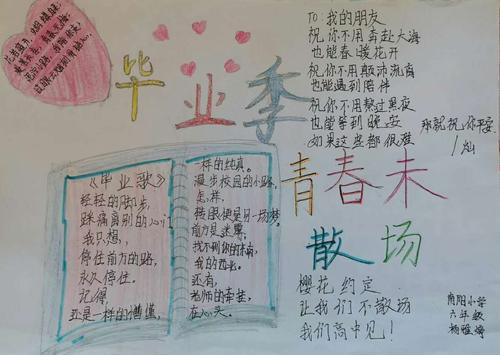 毕业季
TO:我的朋友
祝你不用奔赴大海
也能春暖花开
祝你不用颠沛流离
也能遇到陪伴
祝你不用熬过黑夜
也能等到晚安
如果这些都很难
那就祝你平安
青春未
散场
《毕业歌》
轻轻的脚步,
踩痛离别的心门
我只想,
停住前方的路,
永久停住。
记得,
还是一样的懵懂,
一样的纯真。
漫步校园的小路,
怎样,
转眼便是另一场梦。
前方是迷雾,
找不到你的东南,
我的西北。
还有,
老师的牵挂,
在心头。
樱花约定
让我们不散场
我们高中见!
南阳小学
六年级